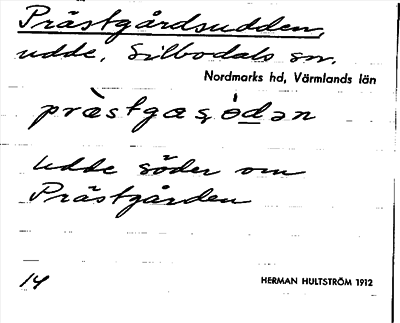 Prästgårdsudden,
udde, Silbodals sn.
Nordmarks hd, Värmlands län
udde söder om
Prästgården
14 HERMAN HULTSTRÖM 1912